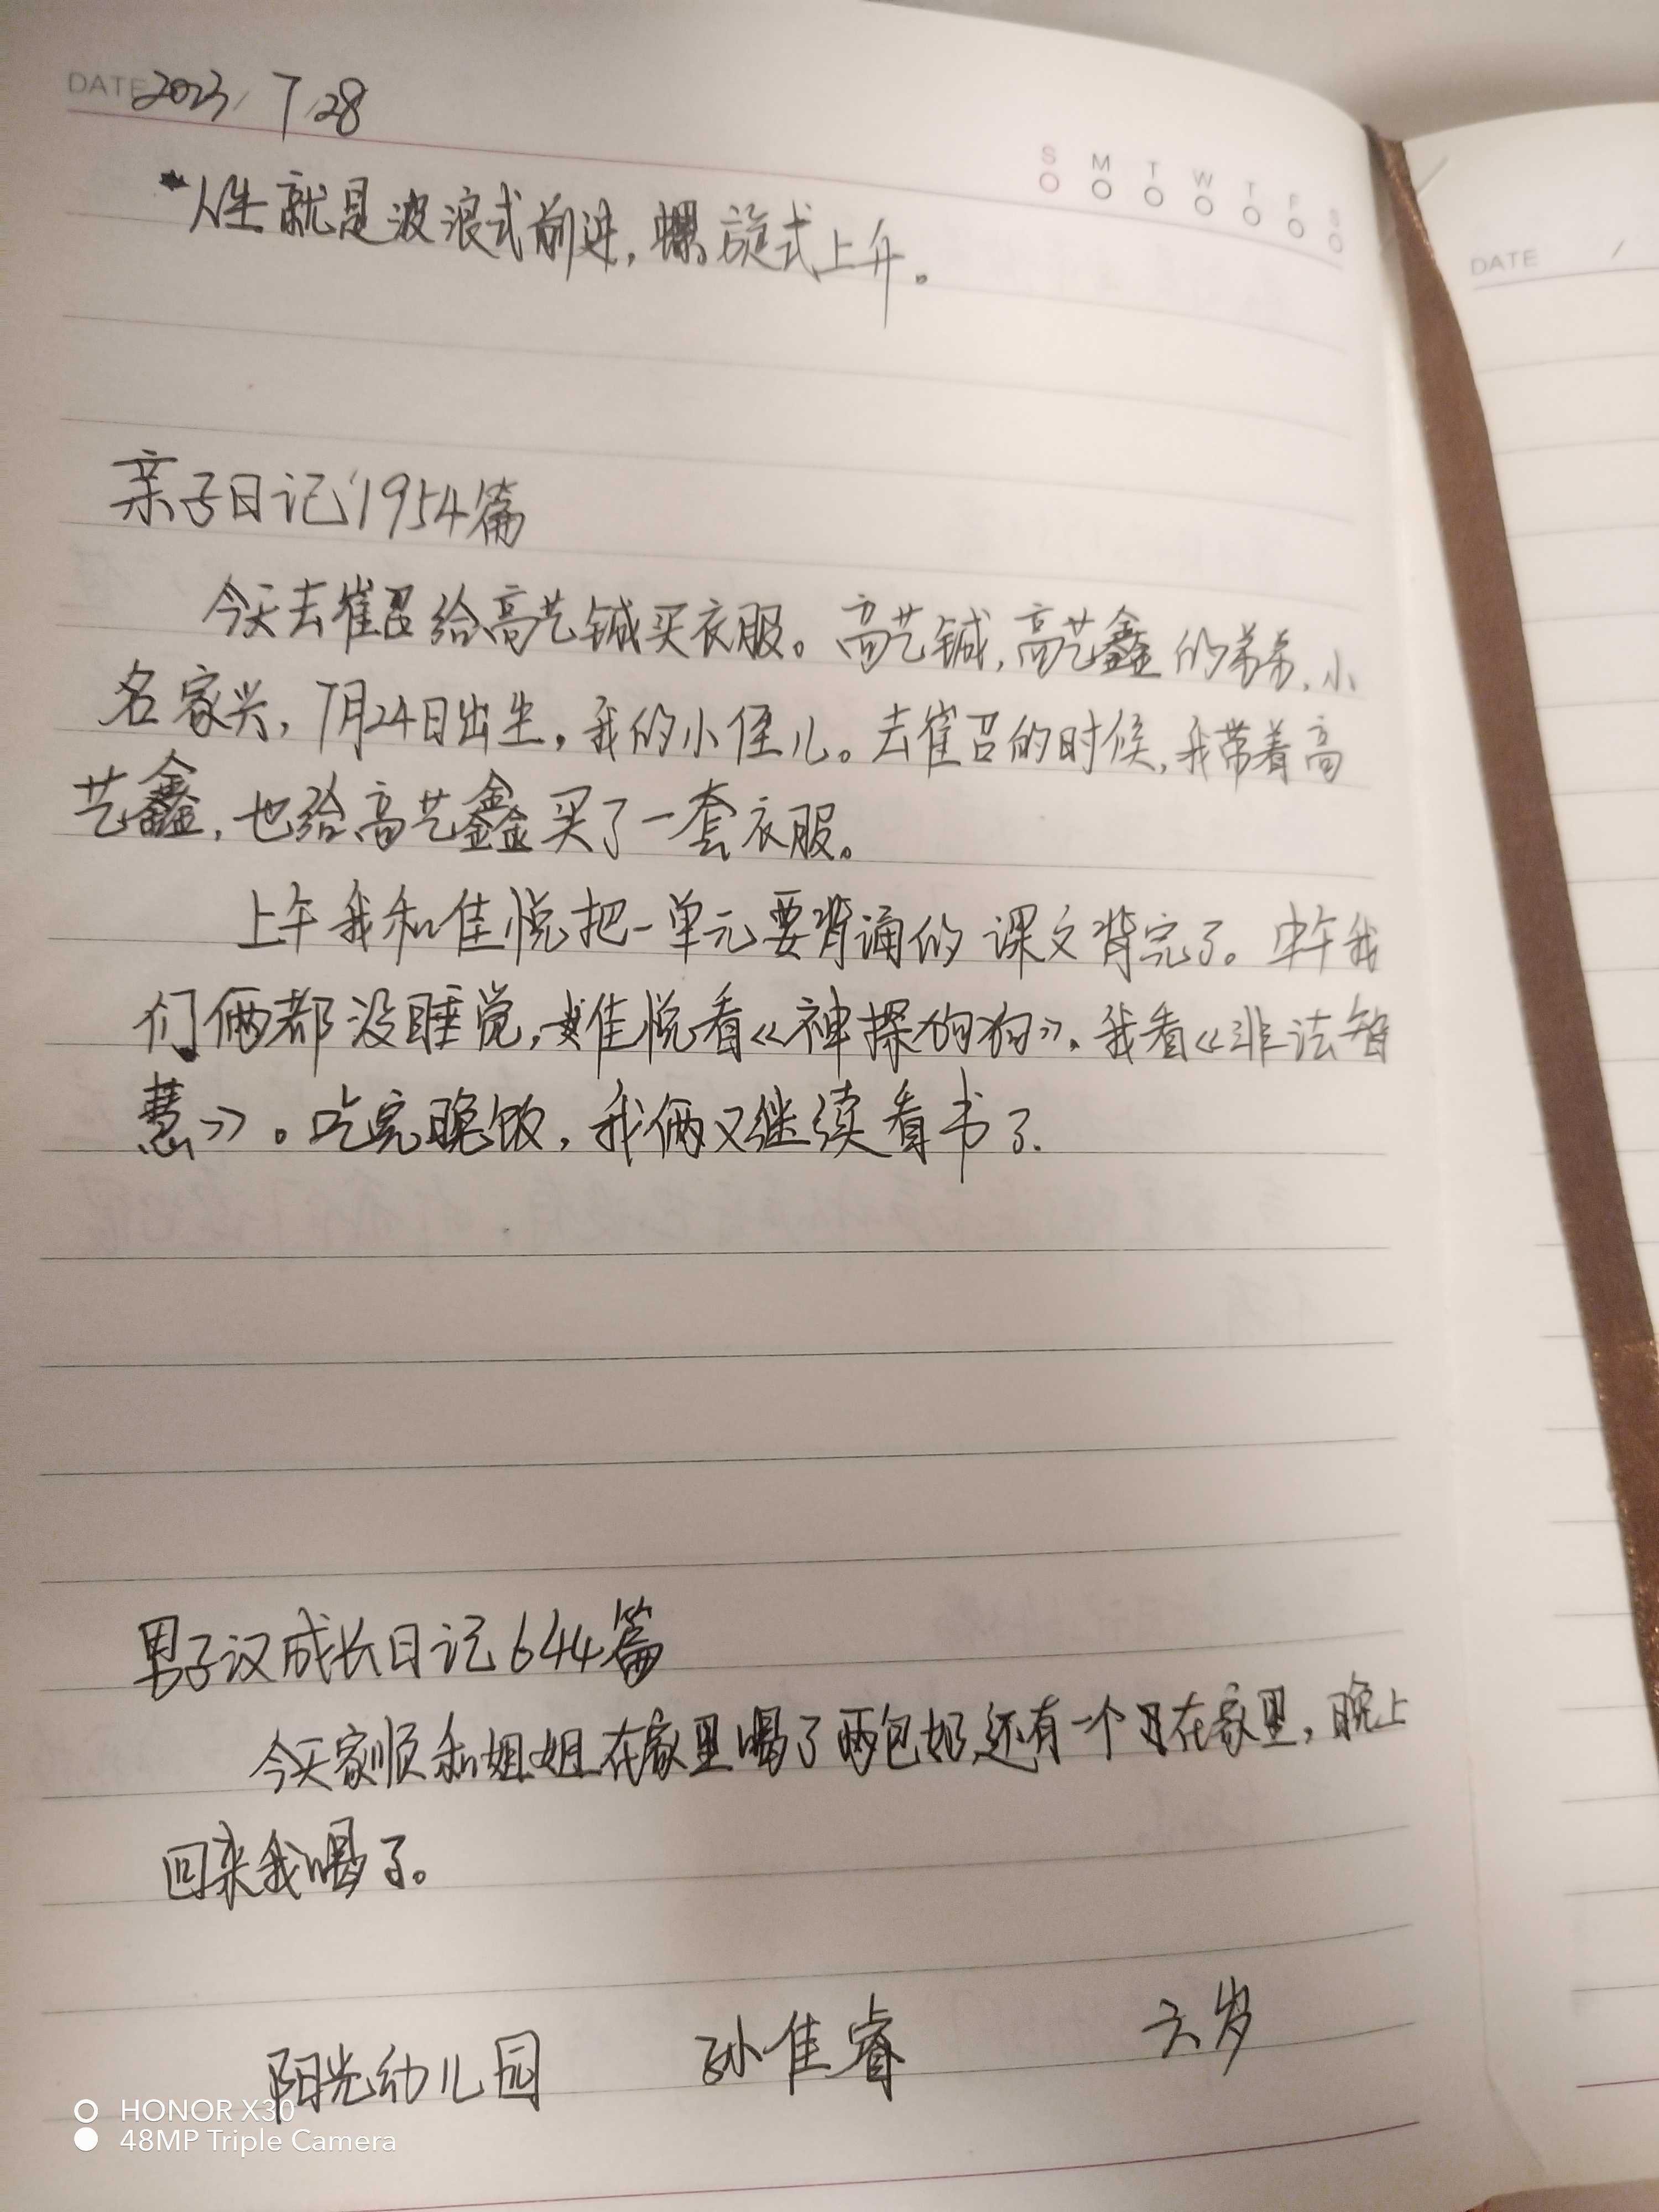 DATE 2023 / 7 / 28
S M T W T F S
DATE /
*人生就是波浪式前进，螺旋式上升。
亲子日记1954篇
今天去崔召给高艺铖买衣服。高艺铖，高艺鑫的弟弟，小
名家兴，7月24日出生，我的小侄儿。去崔召的时候，我带着高
艺鑫，也给高艺鑫买了一套衣服。
上午我和佳悦把一单元要背诵的课文背完了。中午我
们俩都没睡觉，佳悦看《神探狗狗》，我看《非法智
慧》。吃完晚饭，我俩又继续看书了.
男子汉成长日记644篇
今天家顺和姐姐在家里喝了两包奶，还有一个在家里，晚上
回来我喝了。
阳光幼儿园 孙佳睿 六岁
HONOR X30
48MP Triple Camera